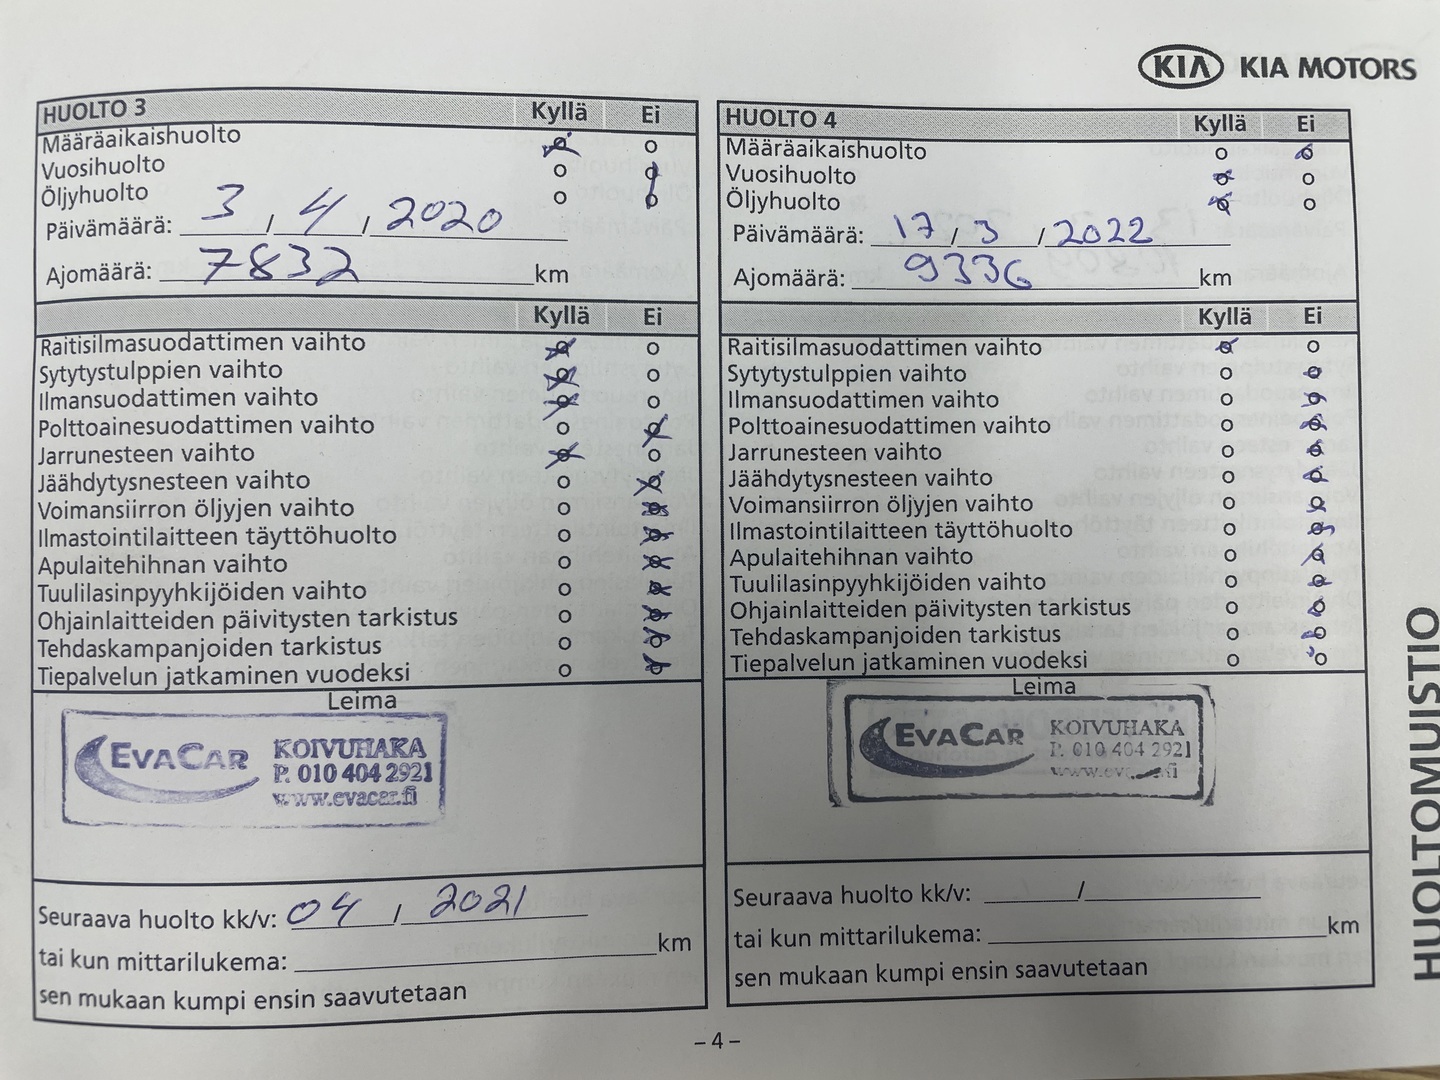 KIA KIA MOTORS
HUOLTO 3 Kyllä Ei
Määräaikaishuolto
Vuosihuolto
Öljyhuolto
Päivämäärä: 3 / 4 / 2020
Ajomäärä: 7832 km
Kyllä Ei
Raitisilmasuodattimen vaihto
Sytytystulppien vaihto
Ilmansuodattimen vaihto
Polttoainesuodattimen vaihto
Jarrunesteen vaihto
Jäähdytysnesteen vaihto
Voimansiirron öljyjen vaihto
Ilmastointilaitteen täyttöhuolto
Apulaitehihnan vaihto
Tuulilasinpyyhkijöiden vaihto
Ohjainlaitteiden päivitysten tarkistus
Tehdaskampanjoiden tarkistus
Tiepalvelun jatkaminen vuodeksi
Leima
EVACAR KOIVUHAKA
P. 010 404 2921
www.evacar.fi
Seuraava huolto kk/v: 04 / 2021
tai kun mittarilukema: km
sen mukaan kumpi ensin saavutetaan
HUOLTO 4 Kyllä Ei
Määräaikaishuolto
Vuosihuolto
Öljyhuolto
Päivämäärä: 17 / 3 / 2022
Ajomäärä: 9336 km
Kyllä Ei
Raitisilmasuodattimen vaihto
Sytytystulppien vaihto
Ilmansuodattimen vaihto
Polttoainesuodattimen vaihto
Jarrunesteen vaihto
Jäähdytysnesteen vaihto
Voimansiirron öljyjen vaihto
Ilmastointilaitteen täyttöhuolto
Apulaitehihnan vaihto
Tuulilasinpyyhkijöiden vaihto
Ohjainlaitteiden päivitysten tarkistus
Tehdaskampanjoiden tarkistus
Tiepalvelun jatkaminen vuodeksi
Leima
EVACAR KOIVUHAKA
P. 010 404 2921
Seuraava huolto kk/v: /
tai kun mittarilukema: km
sen mukaan kumpi ensin saavutetaan
HUOLTOMUISTIO
– 4 –